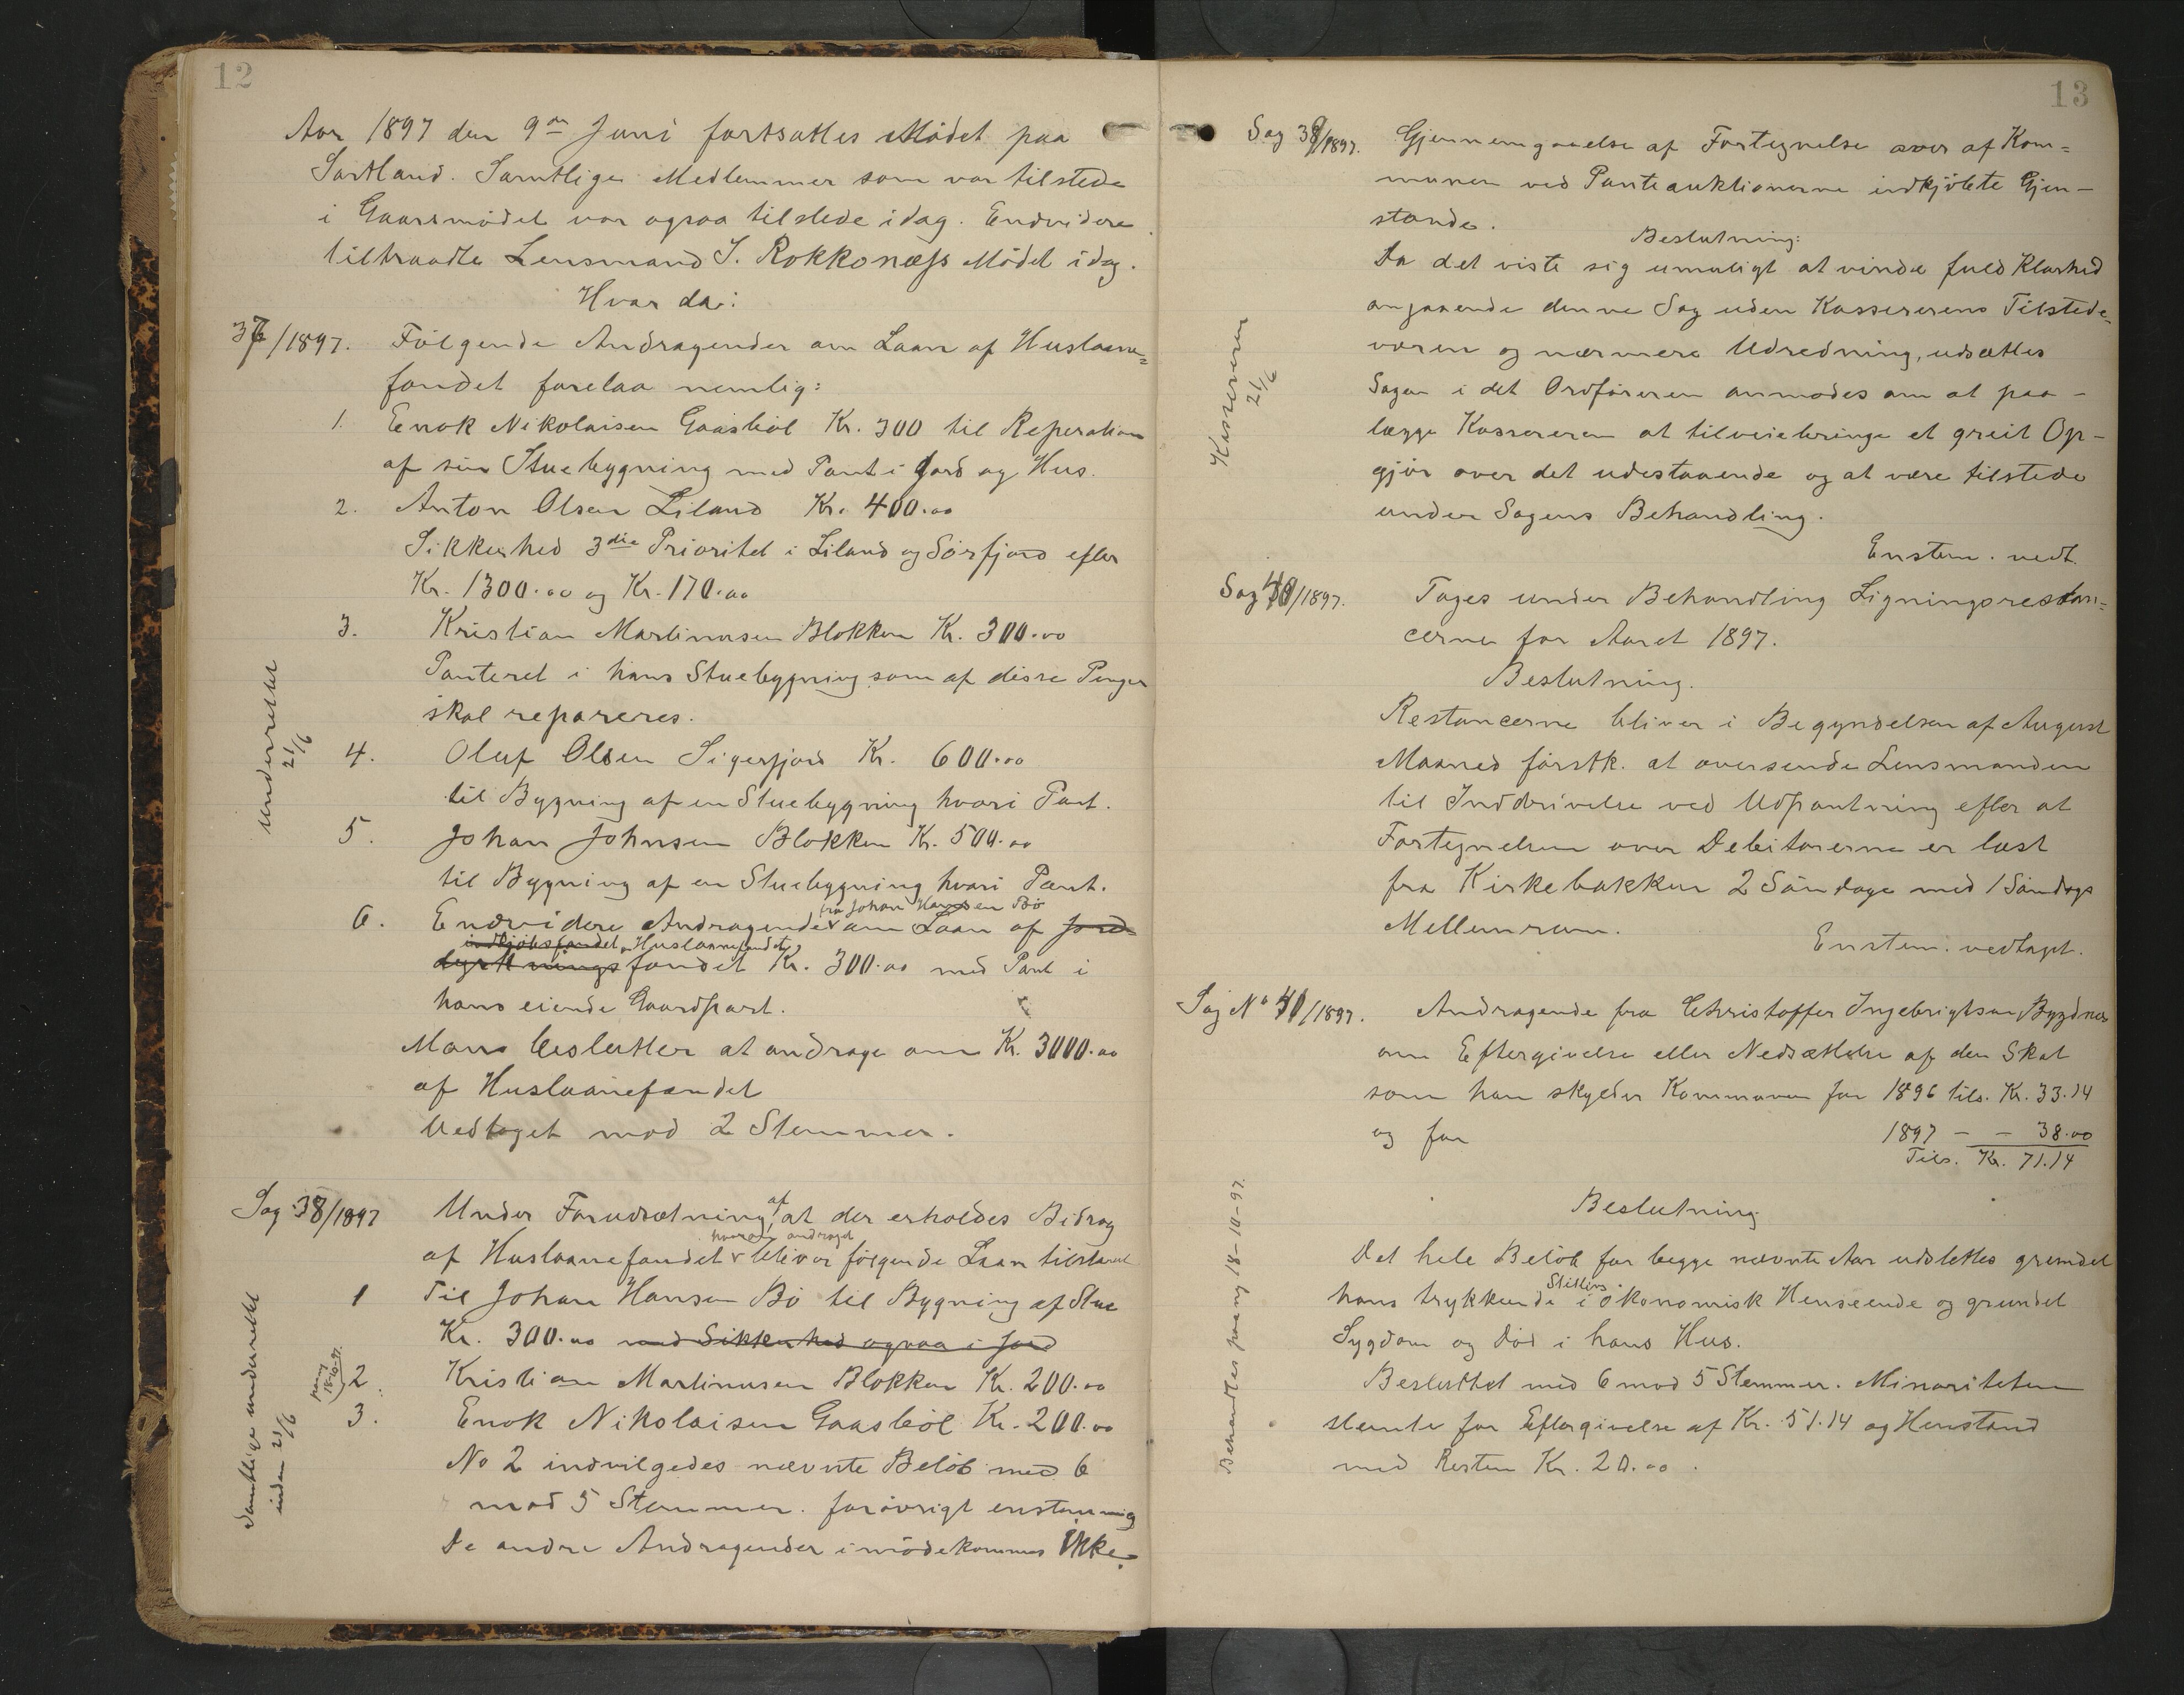 12
Aar 1897 den 9de Juni fortsattes Mødet paa
Sortland. Samtlige Medlemmer som var tilstede
i Gaarsmødet var ogsaa tilstede idag. Endvidere
tiltraadte Lensmand J. Rokkonæss Mødet idag.
Hvor da:
37/1897. Følgende Andragender om Laan af Huslaane=
fondet forelaa nemlig:
1. Enok Nikolaisen Gaasbøl Kr. 300 til Reperation
af sin Stuebygning med Pant i Jord og Hus.
2. Anton Olsen Liland Kr. 400.00
Sikkerhed 3die Prioritet i Liland og Sørfjord efter
Kr. 1300.00 og Kr. 170.00
3. Kristian Martinusen Blokken Kr. 300.00
Panteret i hans Stuebygning som af disse Penger
skal repareres.
4. Oluf Olsen Sigerfjord Kr. 600.00
til Bygning af en Stuebygning hvori Pant.
5. Johan Johnsen Blokken Kr. 500.00
til Bygning af en Stuebygning hvori Pant.
fra Johan Hansen Bø
6. Endvidere Andragende om Laan af Jord-
indkjøbsfondet Huslaanefondet
dyrkningsfondet Kr. 300.00 med Pant i
hans eiende Gaardpart.
Man beslutter at andrage om Kr. 3000.00
af Huslaanefondet
Vedtaget mod 2 Stemmer.
underrettet
21/6
Sag 38/1897 Under Forudsætning af at der erholdes Bidrag
hvorom andraget
af Huslaanefondet bliver følgende Laan tilstaaet
1 Til Johan Hansen Bø til Bygning af Stue
Kr. 300.00 med Sikkerhed ogsaa i Jord
2. Kristian Martinusen Blokken Kr. 200.00
3. Enok Nikolaisen Gaasbøl Kr. 200.00
No 2 indvilgedes nævnte Beløb med 6
mod 5 Stemmer. forøvrigt enstemmig
De andre Andragender imødekommes ikke.
Samtlige underrettet
inden 21/6
paany
18-10-97.
13
Sag 39/1897. Gjennemgaaelse af Fortegnelse over af Kom=
munen ved Panteauktionerne indkjøbte Gjen-
stande.
Beslutning:
Da det viste sig umuligt at vinde fuld Klarhed
angaaende denne Sag uden Kassererens Tilstede-
væren og nærmere Udredning, udsættes
Sagen i det Ordføreren anmodes om at paa-
lægge Kassereren at tilveiebringe et greit Op-
gjør over det udestaaende og at være tilstede
under Sagens Behandling.
Enstem. vedt.
Kassereren
21/6
Sag 40/1897. Tages under Behandling Ligningsrestan=
cerne for Aaret 1897.
Beslutning.
Restancerne bliver i Begyndelsen af August
Maaned førstk. at oversende Lensmanden
til Inddrivelse ved Udpantning efter at
Fortegnelsen over Debitorerne er læst
fra Kirkebakken 2 Søndage med 1 Søndags
Mellemrum.
Enstem. vedtaget.
Sag No 41/1897. Andragende fra Christoffer Ingebrigtsen Bygdnes
om Eftergivelse eller Nedsættelse af den Skat
som han skylder Kommunen for 1896 tils. Kr. 33.14
og for 1897 - - 38.00
Tils. Kr. 71.14
Beslutning
Det hele Beløb for begge nævnte Aar udslettes grundet
Stilling
hans trykkende i økonomisk Henseende og grundet
Sygdom og Død i hans Hus.
Besluttet med 6 mod 5 Stemmer. Minoriteten
stemte for Eftergivelse af Kr. 51.14 og Henstand
med Resten Kr. 20.00.
Behandles paany 18-10-97.